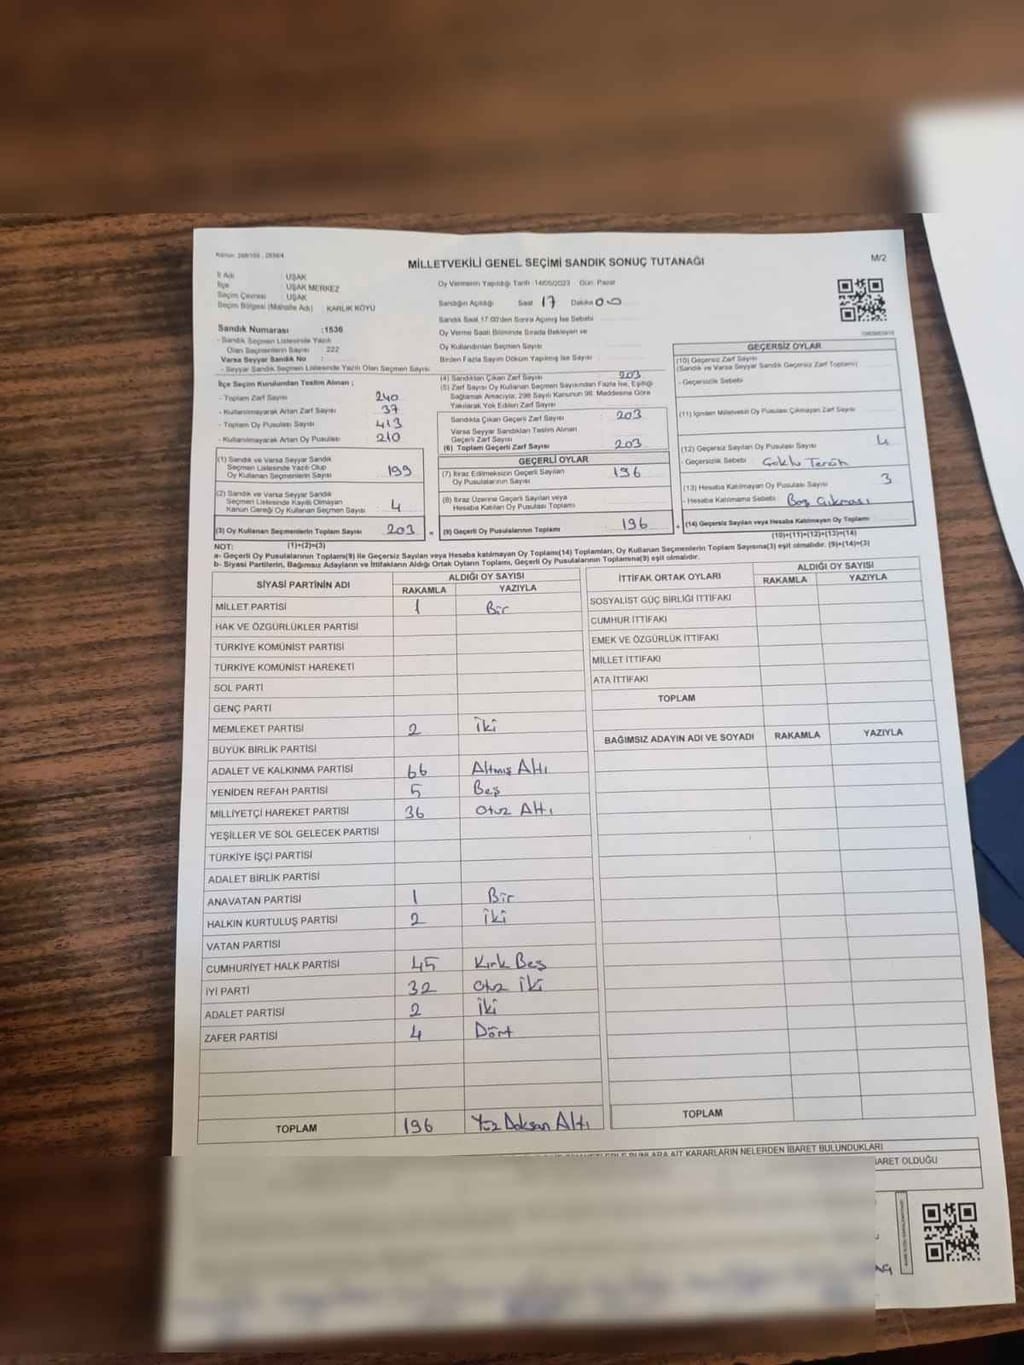 MİLLETVEKİLİ GENEL SEÇİMİ SANDIK SONUÇ TUTANAĞI
M/2
İl Adı : UŞAK
İlçe : UŞAK MERKEZ
Seçim Çevresi : UŞAK
Seçim Bölgesi (Mahalle Adı) : KARLIK KÖYÜ
Sandık Numarası :1536
- Sandık Seçmen Listesinde Yazılı
Olan Seçmenlerin Sayısı : 222
Varsa Seyyar Sandık No :
- Seyyar Sandık Seçmen Listesinde Yazılı Olan Seçmen Sayısı
Oy Vermenin Yapıldığı Tarih :14/05/2023 Gün: Pazar
Sandığın Açıldığı Saat 17 Dakika 00
Sandık Saat 17:00'den Sonra Açılmış İse Sebebi
Oy Verme Saati Bitiminde Sırada Bekleyen ve
Oy Kullandırılan Seçmen Sayısı
Birden Fazla Sayım Döküm Yapılmış İse Sayısı
İlçe Seçim Kurulundan Teslim Alınan ;
- Toplam Zarf Sayısı 240
- Kullanılmayarak Artan Zarf Sayısı 37
- Toplam Oy Pusulası Sayısı 413
- Kullanılmayarak Artan Oy Pusulası 210
(1) Sandık ve Varsa Seyyar Sandık
Seçmen Listesinde Yazılı Olup
Oy Kullanan Seçmen Sayısı 199
(2) Sandık ve Varsa Seyyar Sandık
Seçmen Listesinde Kayıtlı Olmayan
Kanun Gereği Oy Kullanan Seçmen Sayısı 4
(3) Oy Kullanan Seçmenlerin Toplam Sayısı 203
(1)+(2)=(3)
(4) Sandıktan Çıkan Zarf Sayısı 203
(5) Zarf Sayısı Oy Kullanan Seçmen Sayısından Fazla İse, Eşitliği
Sağlamak Amacıyla; 298 Sayılı Kanunun 98. Maddesine Göre
Yakılarak Yok Edilen Zarf Sayısı
Sandıkta Çıkan Geçerli Zarf Sayısı 203
Varsa Seyyar Sandıktan Teslim Alınan
Geçerli Zarf Sayısı
(6) Toplam Geçerli Zarf Sayısı 203
GEÇERLİ OYLAR
(7) İtiraz Edilmeksizin Geçerli Sayılan
Oy Pusulalarının Sayısı 196
(8) İtiraz Üzerine Geçerli Sayılan veya
Hesaba Katılan Oy Pusulalarının Toplamı
(9) Geçerli Oy Pusulalarının Toplamı 196
GEÇERSİZ OYLAR
(10) Geçersiz Zarf Sayısı
(Sandık ve Varsa Seyyar Sandık Geçersiz Zarf Toplamı)
- Geçersizlik Sebebi
(11) İçinden Milletvekili Oy Pusulası Çıkmayan Zarf Sayısı
(12) Geçersiz Sayılan Oy Pusulası Sayısı 4
- Geçersizlik Sebebi Çoklu Tercih
(13) Hesaba Katılmayan Oy Pusulası Sayısı 3
- Hesaba Katılmama Sebebi Boş Çıkması
(14) Geçersiz Sayılan veya Hesaba Katılmayan Oy Toplamı
(10)+(11)+(12)+(13)=(14)
NOT:
a- Geçerli Oy Pusulalarının Toplamı(9) ile Geçersiz Sayılan veya Hesaba katılmayan Oy Toplamı(14) Toplamları, Oy Kullanan Seçmenlerin Toplam Sayısına(3) eşit olmalıdır. (9)+(14)=(3)
b- Siyasi Partilerin, Bağımsız Adayların ve İttifakların Aldığı Ortak Oyların Toplamı, Geçerli Oy Pusulalarının Toplamına(9) eşit olmalıdır.
SİYASİ PARTİNİN ADI
ALDIĞI OY SAYISI
RAKAMLA YAZIYLA
MİLLET PARTİSİ 1 Bir
HAK VE ÖZGÜRLÜKLER PARTİSİ
TÜRKİYE KOMÜNİST PARTİSİ
TÜRKİYE KOMÜNİST HAREKETİ
SOL PARTİ
GENÇ PARTİ
MEMLEKET PARTİSİ 2 İki
BÜYÜK BİRLİK PARTİSİ
ADALET VE KALKINMA PARTİSİ 66 Altmış Altı
YENİDEN REFAH PARTİSİ 5 Beş
MİLLİYETÇİ HAREKET PARTİSİ 36 Otuz Altı
YEŞİLLER VE SOL GELECEK PARTİSİ
TÜRKİYE İŞÇİ PARTİSİ
ADALET BİRLİK PARTİSİ
ANAVATAN PARTİSİ 1 Bir
HALKIN KURTULUŞ PARTİSİ 2 İki
VATAN PARTİSİ
CUMHURİYET HALK PARTİSİ 45 Kırk Beş
İYİ PARTİ 32 Otuz İki
ADALET PARTİSİ 2 İki
ZAFER PARTİSİ 4 Dört
TOPLAM 196 Yüz Doksan Altı
İTTİFAK ORTAK OYLARI
ALDIĞI OY SAYISI
RAKAMLA YAZIYLA
SOSYALİST GÜÇ BİRLİĞİ İTTİFAKI
CUMHUR İTTİFAKI
EMEK VE ÖZGÜRLÜK İTTİFAKI
MİLLET İTTİFAKI
ATA İTTİFAKI
TOPLAM
BAĞIMSIZ ADAYIN ADI VE SOYADI RAKAMLA YAZIYLA
TOPLAM
AİT KARARLARIN NELERDEN İBARET BULUNDUKLARI
OLDUĞU